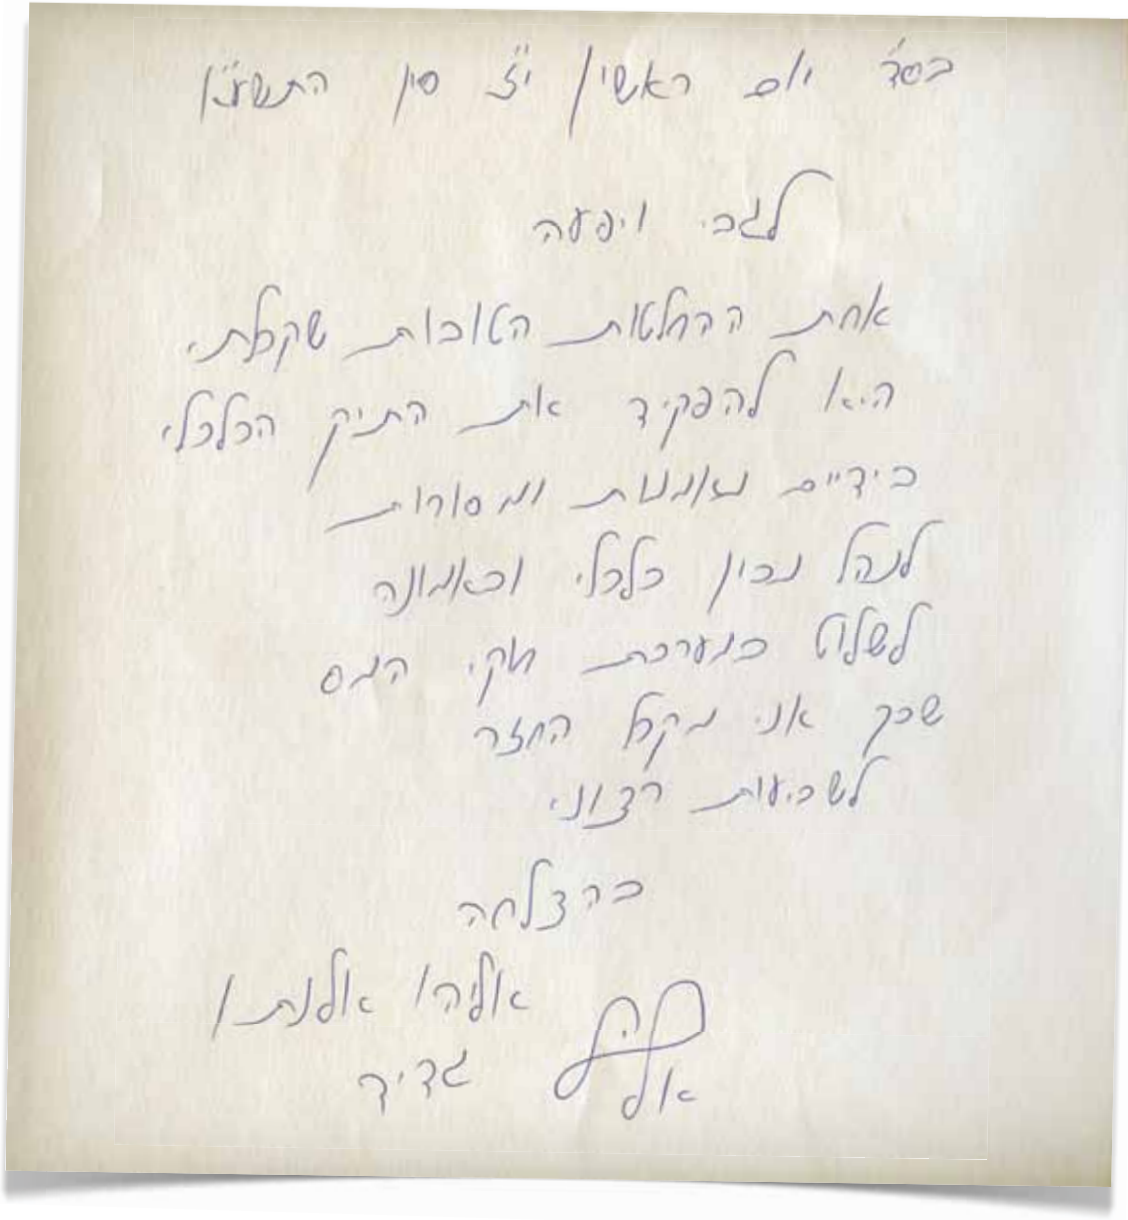 בס"ד יום ראשון י"ז סיון התשע"ו
לגבי ויפעה
אחת ההחלטות הטובות שקבלתי
היא להפקיד את התיק הכלכלי
בידיים נאמנות ומסורות
לנהל נכון כלכלי ובאמונה
לשלוט במערכת חוקי המס
שכך אני מקבל החזר
לשביעות רצוני
בהצלחה
אליהו אלנתן
גדיד